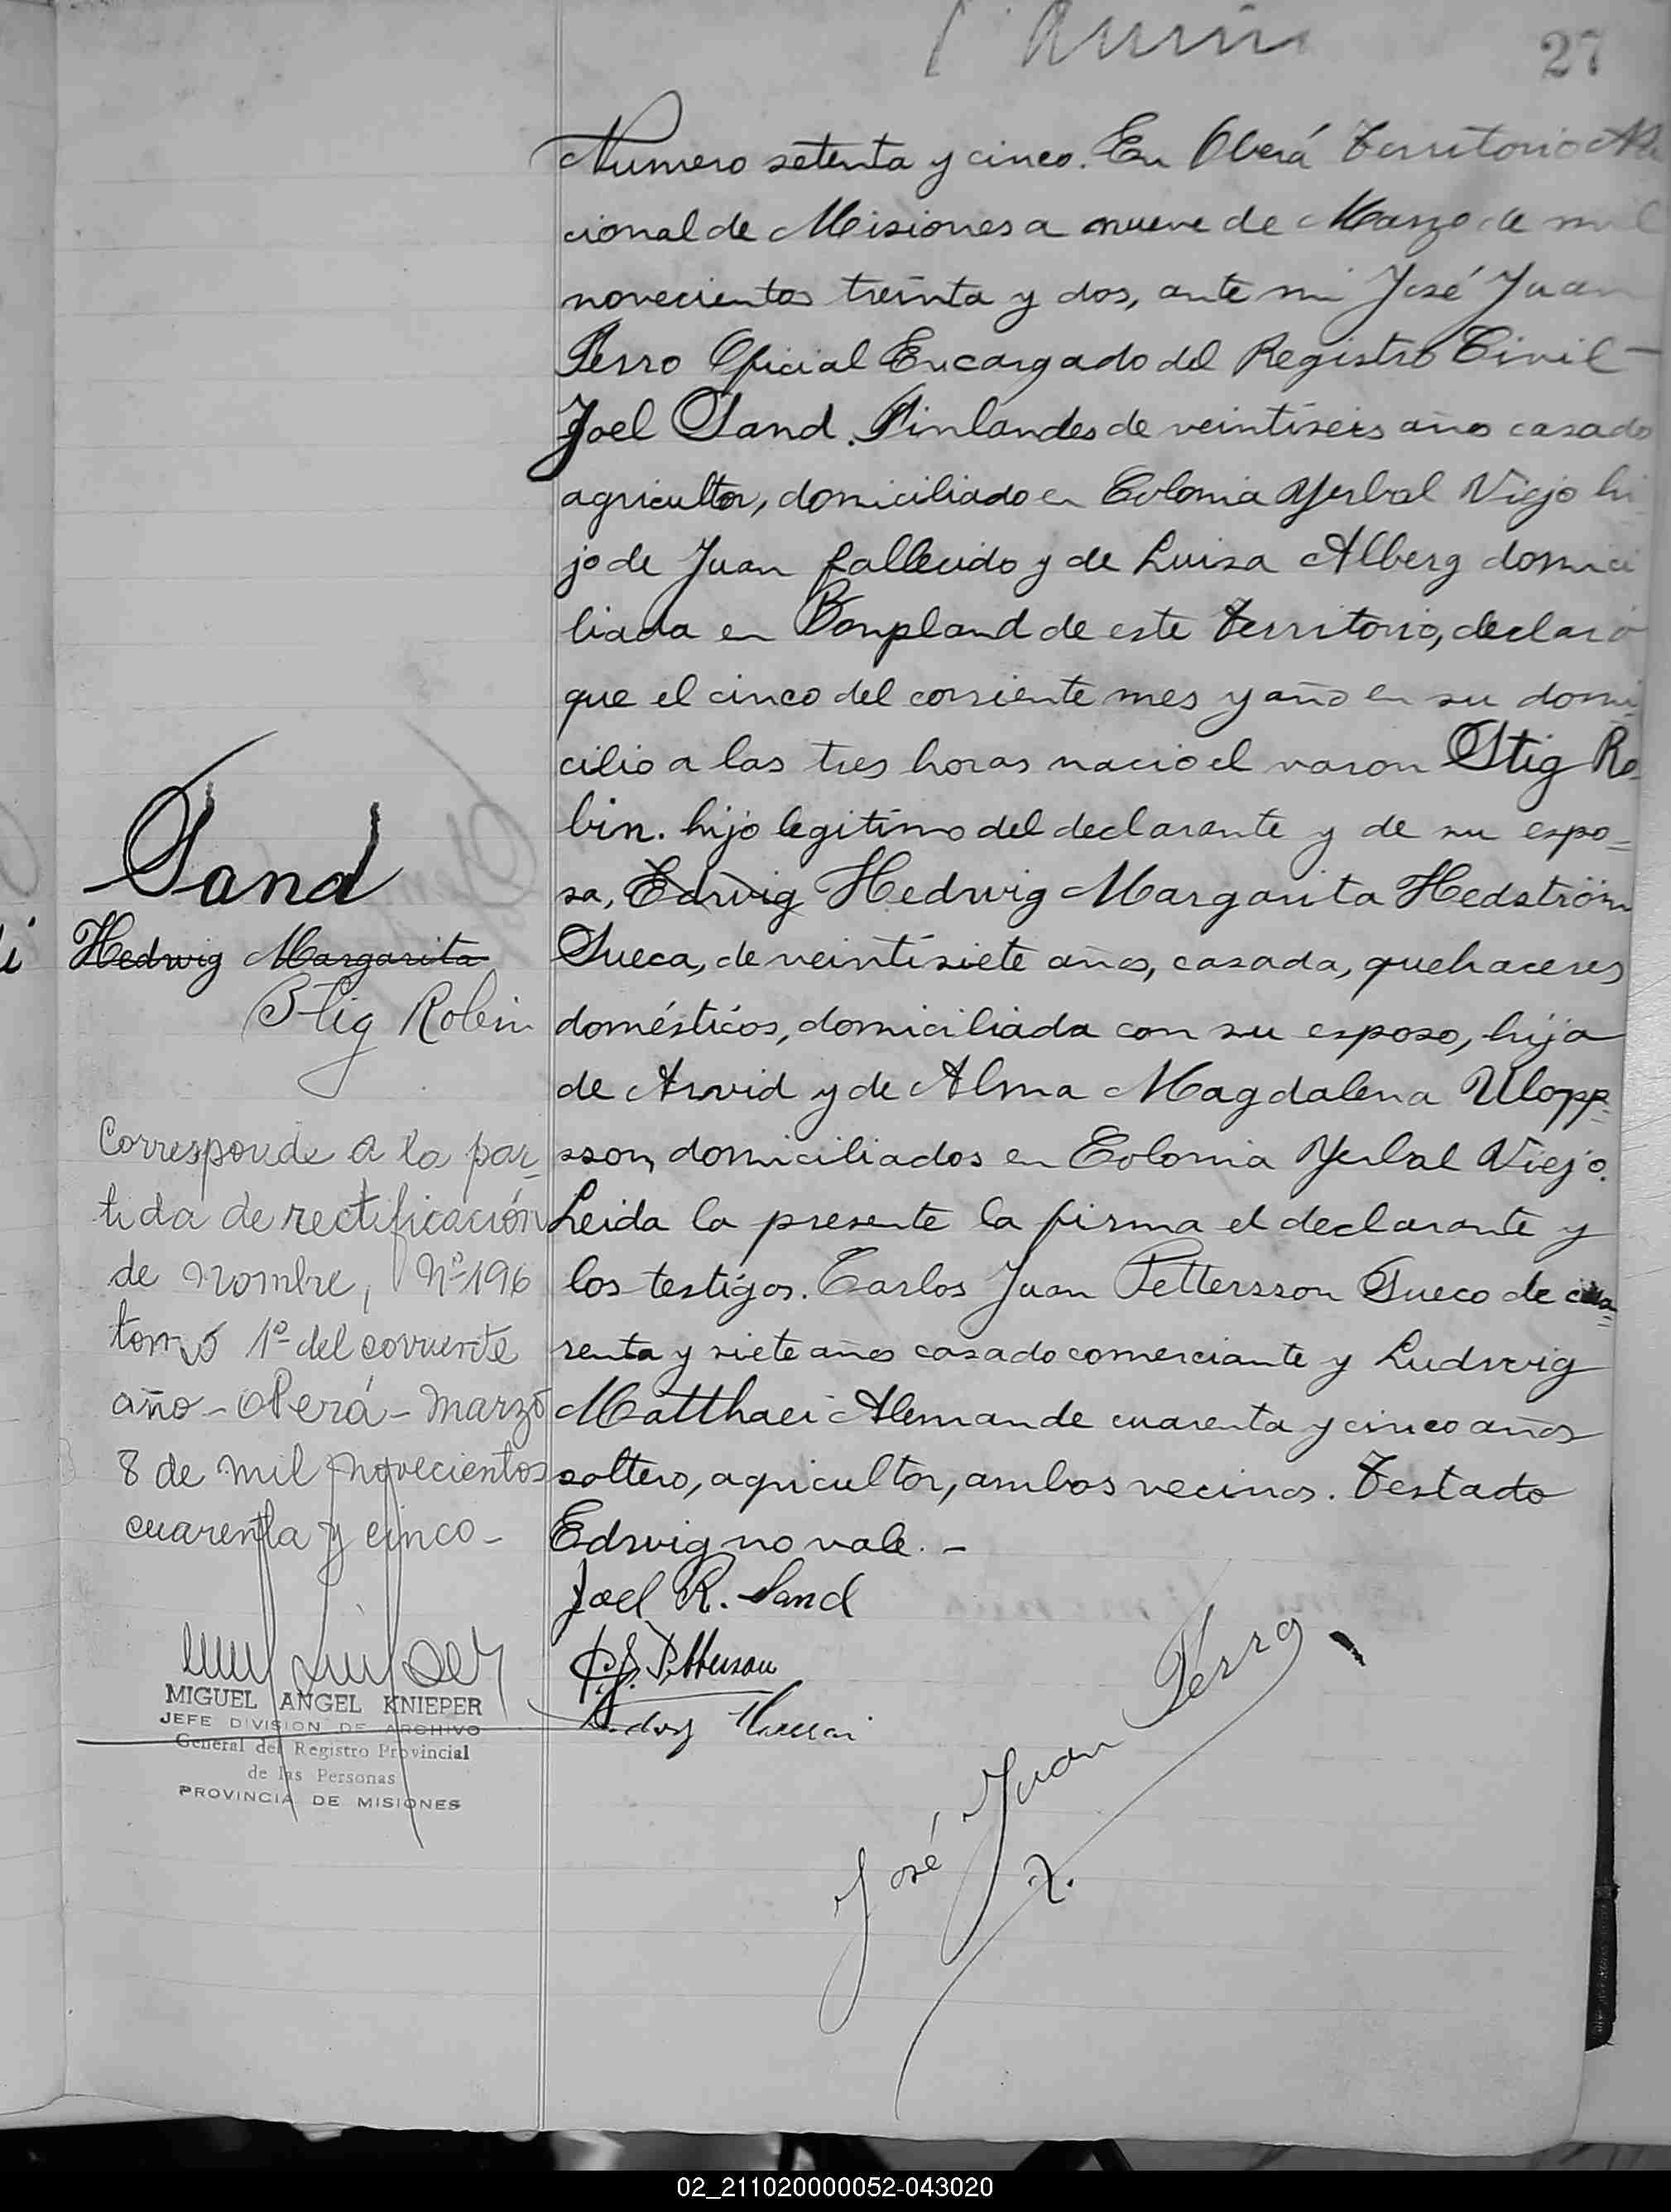 27
Numero setenta y cinco. En Oberá Territorio Na
cional de Misiones a nueve de Marzo de mil
novecientos treinta y dos, ante mi José Juan
Perro Oficial Encargado del Registro Civil —
Joel Sand. Finlandes de veintiseis años casado
agricultor, domiciliado en Colonia Yerbal Viejo hi
jo de Juan fallecido y de Luisa Alberg domici
liada en Bonpland de este Territorio, declaró
que el cinco del corriente mes y año en su domi
cilio a las tres horas nacio el varon Stig Ro
bin. hijo legitimo del declarante y de su espo=
sa, Edwig Hedwig Margarita Hedström
Sueca, de veintisiete años, casada, quehaceres
domésticos, domiciliada con su esposo, hija
de Arvid y de Alma Magdalena Ulopp=
sson, domiciliados en Colonia Yerbal Viejo.
Leida la presente la firma el declarante y
los testigos. Carlos Juan Pettersson Sueco de cua=
renta y siete años casado comerciante y Ludwig
Matthaei Aleman de cuarenta y cinco años
soltero, agricultor, ambos vecinos. Testado
Edwig no vale. —
Joel R. Sand
José Juan Perro
Sand
Hedwig Margarita
Stig Robin
Corresponde a la par_
tida de rectificación
de nombre, Nº 196
tomo 1º del corriente
año - Oberá - Marzo
8 de mil novecientos
cuarenta y cinco -
MIGUEL ANGEL KNIEPER
JEFE DIVISION DE ARCHIVO
General del Registro Provincial
de las Personas
PROVINCIA DE MISIONES
02_211020000052-043020